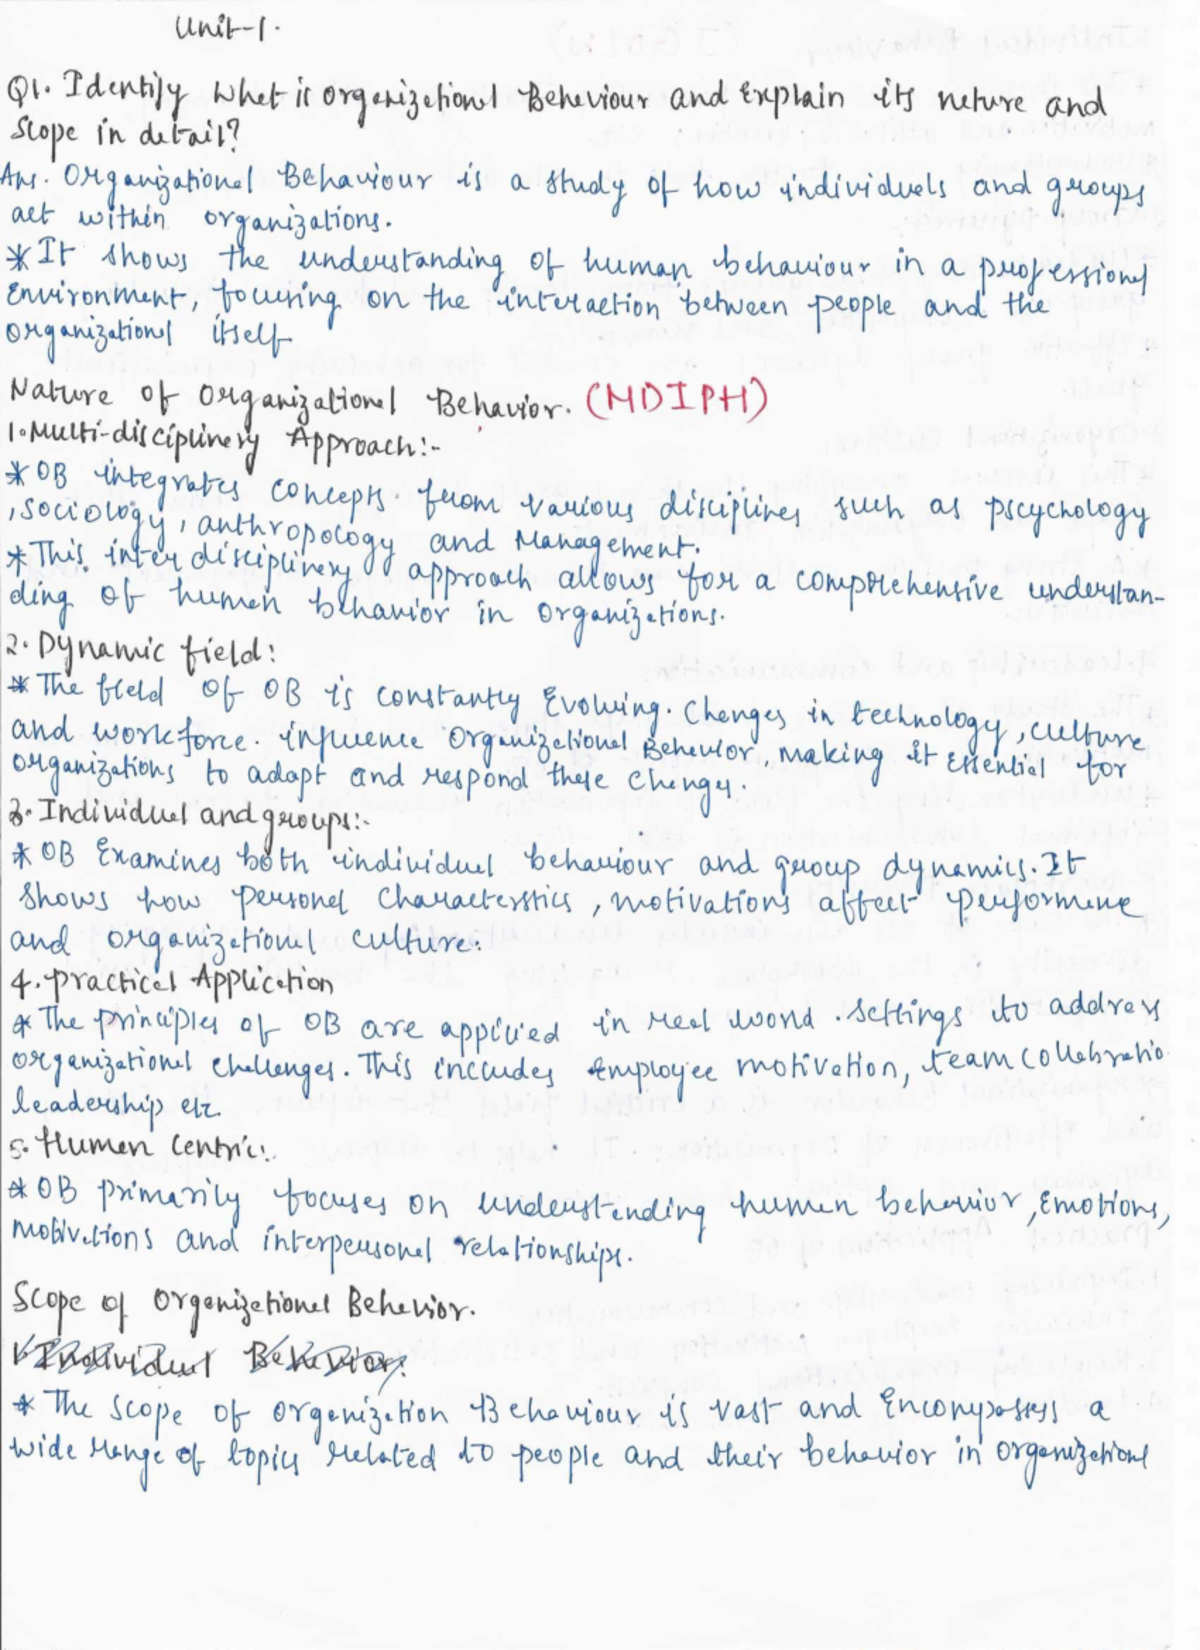 Unit-1.
Q1. Identify what is organizational Behaviour and Explain its nature and
Scope in detail?
Ans. Organizational Behaviour is a study of how individuals and groups
act within organizations.
* It shows the understanding of human behaviour in a professional
Environment, focusing on the interaction between people and the
organizational itself.
Nature of Organizational Behavior. (MDIPH)
1. Multi-disciplinary Approach:-
* OB integrates concepts from various disciplines such as pscychology
, sociology, anthropology and Management.
* This inter disciplinary approach allows for a comprehensive understan-
ding of human behavior in organizations.
2. Dynamic field:
* The field of OB is constantly Evolving. Changes in technology, culture
and workforce. influence Organizational Behavior, making it Essential for
organizations to adapt and respond these changes.
3. Individual and groups:-
* OB Examines both individual behaviour and group dynamics. It
shows how personal characterstics, motivations affect performne
and organizational culture.
4. practical Application
* The principles of OB are applied in real world. settings to address
organizational challenges. This includes employee motivation, team collabratio
leadership etc.
5. Human Centric:
* OB primarily focuses on understanding human behavior, Emotions,
motivations and interpersonal relationships.
Scope of Organizational Behavior.
1. Individual Behavior:
* The scope of organization Behaviour is vast and Encompasses a
wide range of topics related to people and their behavior in organizational